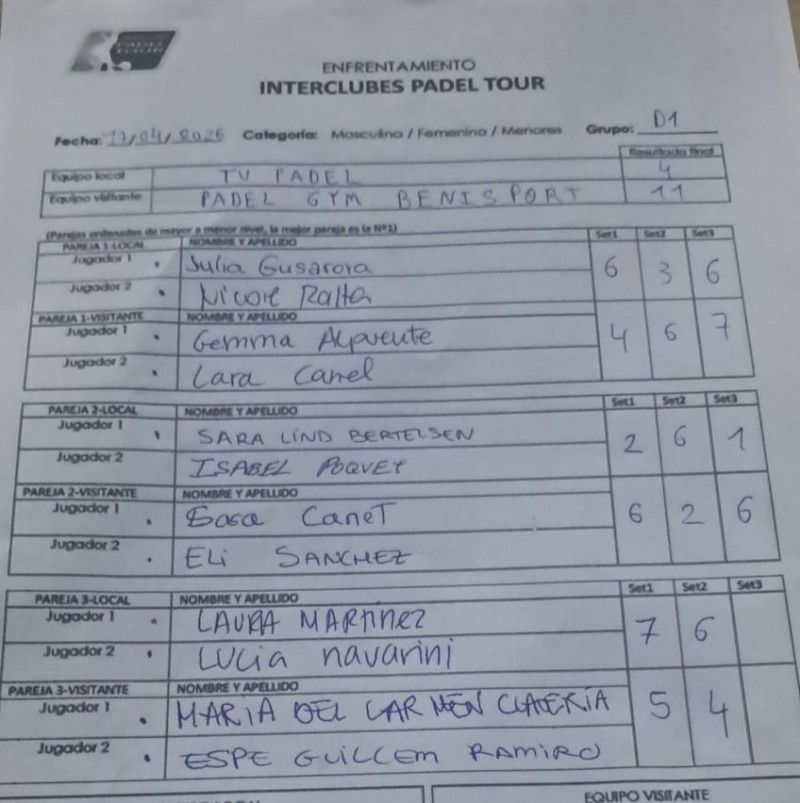 PADEL TOUR
ENFRENTAMIENTO
INTERCLUBES PADEL TOUR
Fecha: 17/04/2026 Categoría: Masculino / Femenino / Menores Grupo: D1
Resultado final
Equipo local TV PADEL 4
Equipo visitante PADEL GYM BENISPORT 11
(Parejas ordenadas de mayor a menor nivel, la mejor pareja es la Nº1)
PAREJA 1-LOCAL NOMBRE Y APELLIDO Set1 Set2 Set3
Jugador 1 Julia Gusarova 6 3 6
Jugador 2 Nicole Ralta
PAREJA 1-VISITANTE NOMBRE Y APELLIDO
Jugador 1 Gemma Alpuente 4 6 7
Jugador 2 Lara Canel
PAREJA 2-LOCAL NOMBRE Y APELLIDO Set1 Set2 Set3
Jugador 1 SARA LIND BERTELSEN 2 6 1
Jugador 2 ISABEL POQUET
PAREJA 2-VISITANTE NOMBRE Y APELLIDO
Jugador 1 Canet 6 2 6
Jugador 2 ELI SANCHEZ
PAREJA 3-LOCAL NOMBRE Y APELLIDO Set1 Set2 Set3
Jugador 1 LAURA MARTINEZ 7 6
Jugador 2 LUCIA navarini
PAREJA 3-VISITANTE NOMBRE Y APELLIDO
Jugador 1 MARIA DEL CARMEN CLAVERÍA 5 4
Jugador 2 ESPE GUILLEM RAMIRO
EQUIPO VISITANTE